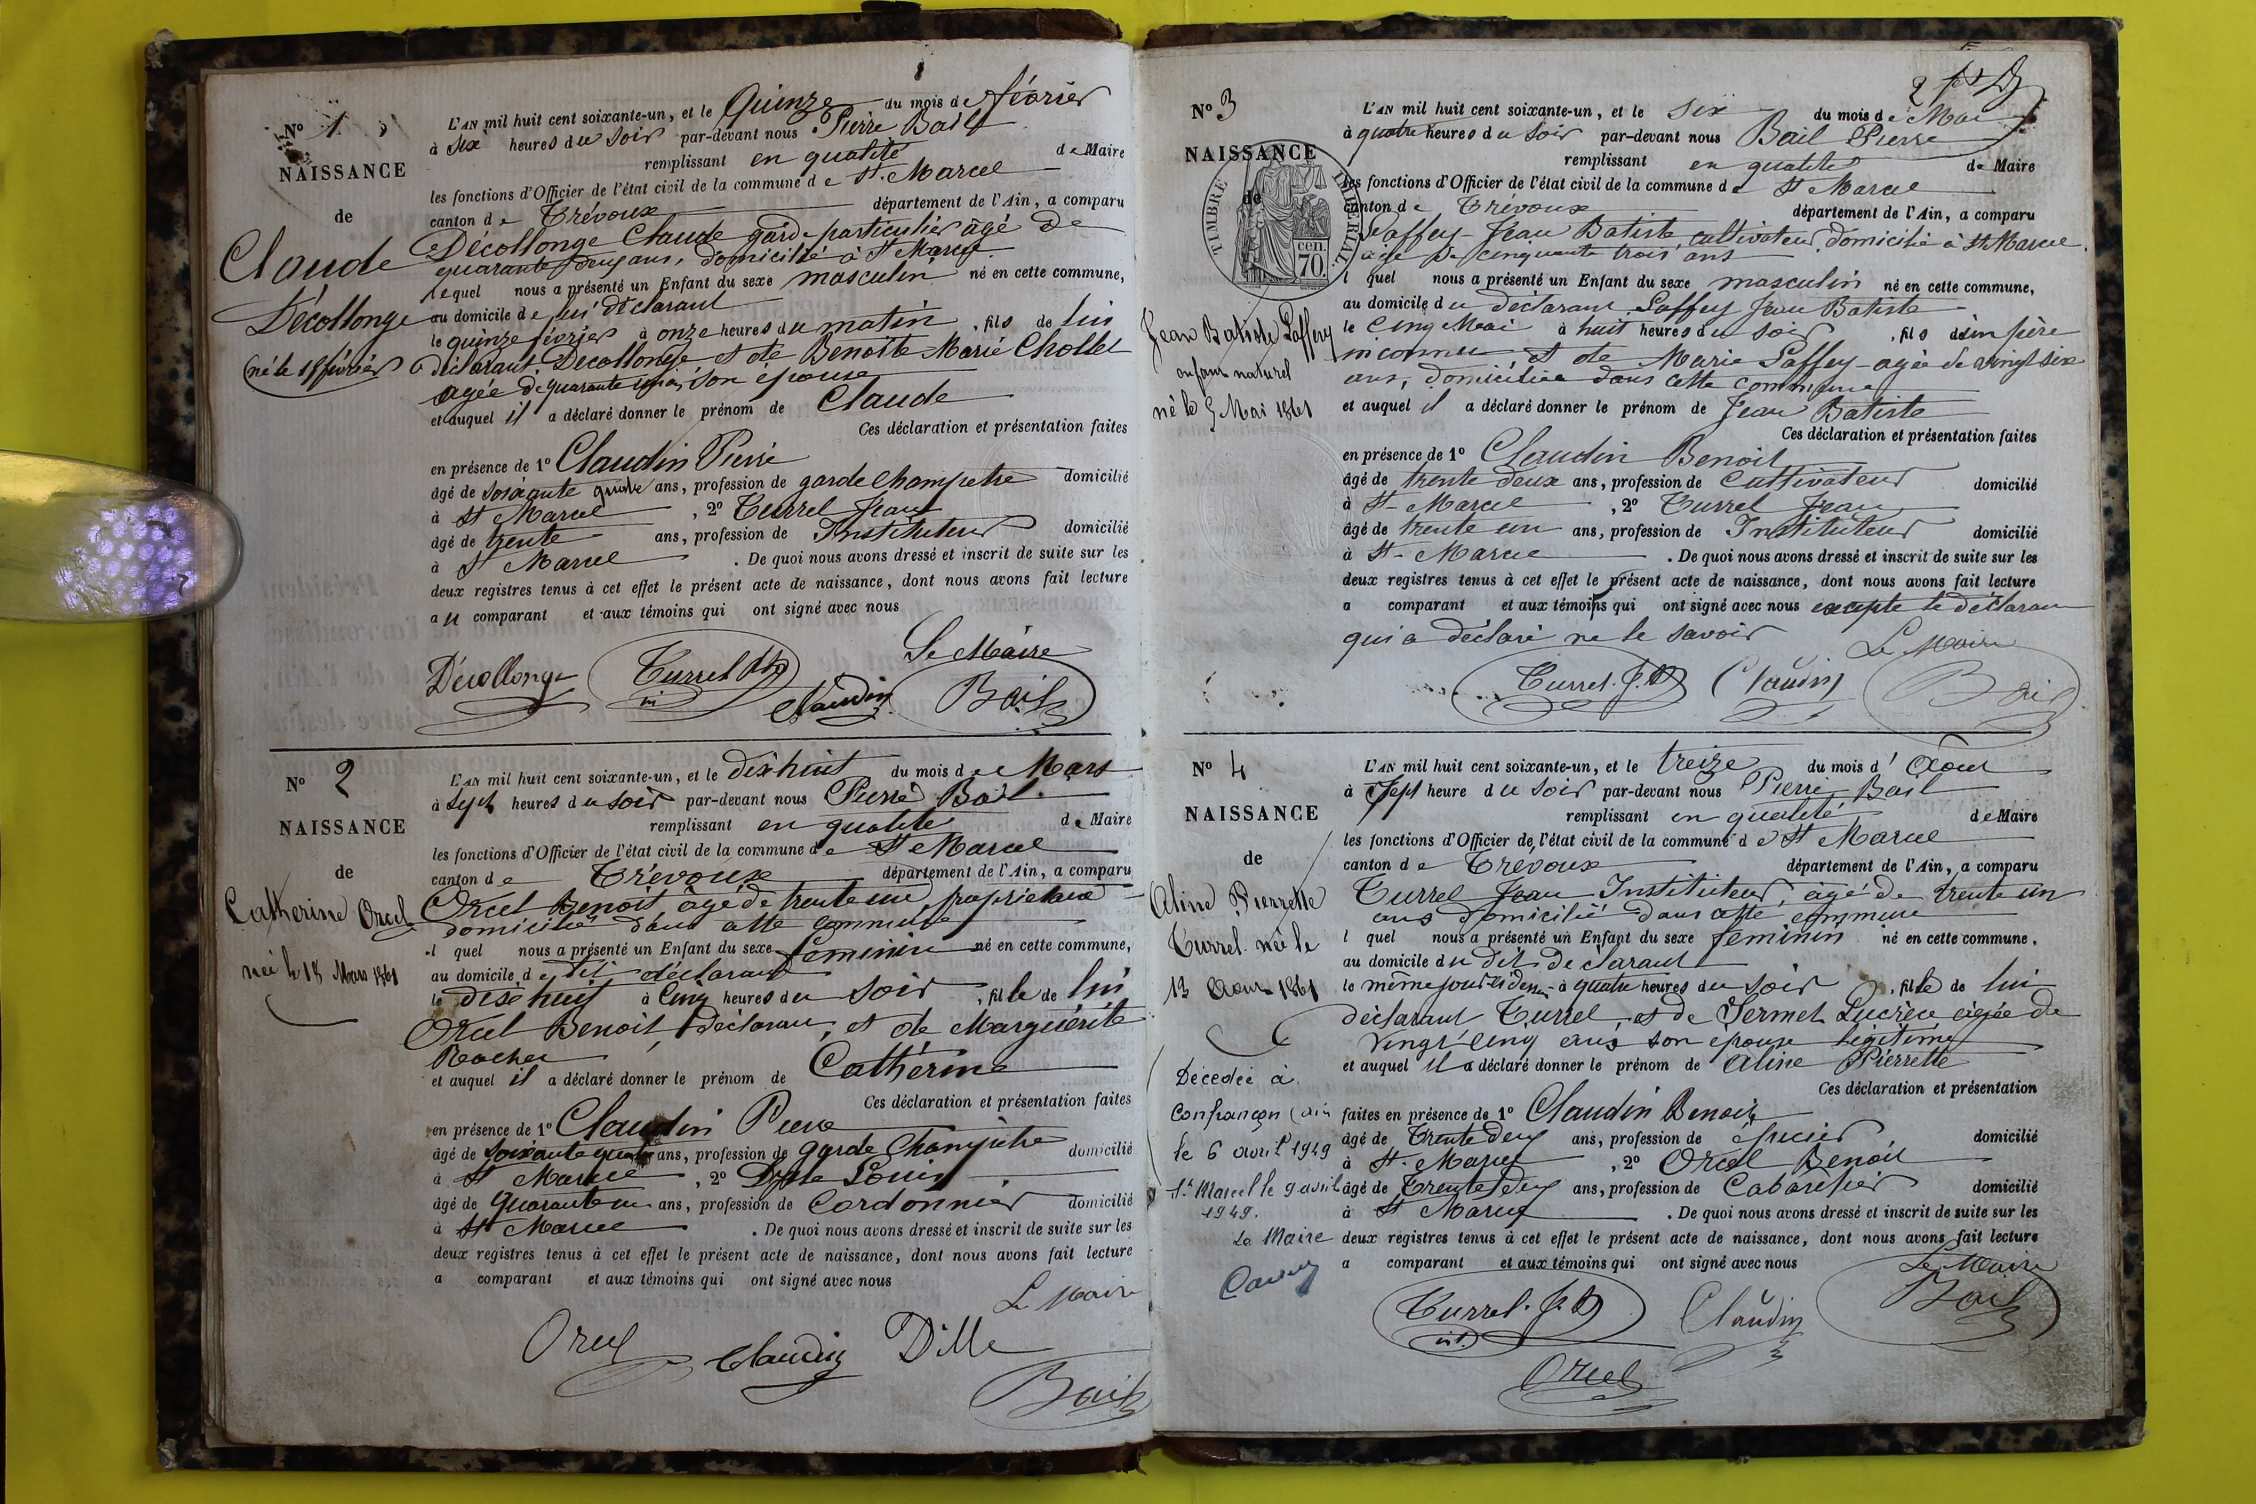 No 1
NAISSANCE
de
Claude
Décollonge
(né le 15 février
L'AN mil huit cent soixante-un, et le Quinze du mois de février
à six heures du soir par-devant nous Pierre Bail
remplissant en qualité de Maire
les fonctions d'Officier de l'état civil de la commune de St. Marcel
canton de Trévoux département de l'Ain, a comparu
Décollonge Claude garde particulier âgé de
quarante deux ans, domicilié à St Marcel
lequel nous a présenté un Enfant du sexe masculin né en cette commune,
au domicile de lui déclarant
le quinze février à onze heures du matin, fils de lui
déclarant Décollonge et de Benoite Marie Chollet
agée de quarante son épouse
et auquel il a déclaré donner le prénom de Claude
Ces déclaration et présentation faites
en présence de 1o Claudin Pierre
âgé de soixante quatre ans, profession de garde Champetre domicilié
à St Marcel, 2o Turrel Jean
âgé de trente ans, profession de Instituteur domicilié
à St Marcel. De quoi nous avons dressé et inscrit de suite sur les
deux registres tenus à cet effet le présent acte de naissance, dont nous avons fait lecture
au comparant et aux témoins qui ont signé avec nous
Le Maire
Décollonge Turrel Claudin Bail
No 2
NAISSANCE
de
Catherine Orcel
née le 18 Mars 1861
L'AN mil huit cent soixante-un, et le dix huit du mois de Mars
à sept heures du soir par-devant nous Pierre Bail
remplissant en qualité de Maire
les fonctions d'Officier de l'état civil de la commune de St Marcel
canton de Trévoux département de l'Ain, a comparu
Orcel Benoit âgé de trente un propriétaire
domicilié dans cette commune
lquel nous a présenté un Enfant du sexe féminin né en cette commune,
au domicile de dit déclarant
le dix huit à cinq heures du soir, fille de lui
Orcel Benoit, déclarant, et de Marguérite
Rocher
et auquel il a déclaré donner le prénom de Cathérine
Ces déclaration et présentation faites
en présence de 1o Claudin Pierre
âgé de soixante quatre ans, profession de garde Champêtre domicilié
à St Marcel, 2o Dille Louis
âgé de quarante un ans, profession de Cordonnier domicilié
à St Marcel. De quoi nous avons dressé et inscrit de suite sur les
deux registres tenus à cet effet le présent acte de naissance, dont nous avons fait lecture
a comparant et aux témoins qui ont signé avec nous
Le Maire
Orcel Claudin Dille
Bail
2
No 3
NAISSANCE
de
TIMBRE IMPERIAL
70 cen.
Jean Batiste Laffey
enfant naturel
né le 5 Mai 1861
L'AN mil huit cent soixante-un, et le six du mois de Mai
à quatre heures du soir par-devant nous Bail Pierre
remplissant en qualité de Maire
les fonctions d'Officier de l'état civil de la commune de St Marcel
canton de Trévoux département de l'Ain, a comparu
Laffey Jean Batiste cultivateur, domicilié à St Marcel
age de cinquante trois ans
lquel nous a présenté un Enfant du sexe masculin né en cette commune,
au domicile du déclarant Laffey Jean Batiste
le cinq Mai à huit heures du soir, fils d'un père
inconnu et de Marie Laffey agée de vingt six
ans, domiciliée dans cette commune
et auquel il a déclaré donner le prénom de Jean Batiste
Ces déclaration et présentation faites
en présence de 1o Claudin Benoit
âgé de trente deux ans, profession de Cultivateur domicilié
à St Marcel, 2o Turrel Jean
âgé de trente un ans, profession de Instituteur domicilié
à St Marcel. De quoi nous avons dressé et inscrit de suite sur les
deux registres tenus à cet effet le présent acte de naissance, dont nous avons fait lecture
a comparant et aux témoins qui ont signé avec nous excepte le déclarant
qui a déclaré ne le savoir
Le Maire
Turrel Claudin Bail
No 4
NAISSANCE
de
Aline Pierrette
Turrel née le
13 Aout 1861
Décédée à
Confrançon (Ain
le 6 avril 1949
St Marcel le 9 avril
1949.
Le Maire
L'AN mil huit cent soixante-un, et le treize du mois d'Aout
à Sept heure du soir par-devant nous Pierre Bail
remplissant en qualité de Maire
les fonctions d'Officier de l'état civil de la commune de St Marcel
canton de Trévoux département de l'Ain, a comparu
Turrel Jean Instituteur, âgé de trente un
ans domicilié dans cette commune
lquel nous a présenté un Enfant du sexe féminin né en cette commune.
au domicile du dit déclarant
le même jour à quatre heures du soir, fille de lui
déclarant Turrel, et de Sermet Lucrèce agée de
vingt cinq ans son épouse légitime
et auquel il a déclaré donner le prénom de Aline Pierrette
Ces déclaration et présentation
faites en présence de 1o Claudin Benoit
âgé de Trente deux ans, profession de épicier domicilié
à St Marcel, 2o Orcel Benoit
âgé de Trente deux ans, profession de Cabaretier domicilié
à St Marcel. De quoi nous avons dressé et inscrit de suite sur les
deux registres tenus à cet effet le présent acte de naissance, dont nous avons fait lecture
a comparant et aux témoins qui ont signé avec nous
Le Maire
Turrel Claudin Bail
Orcel